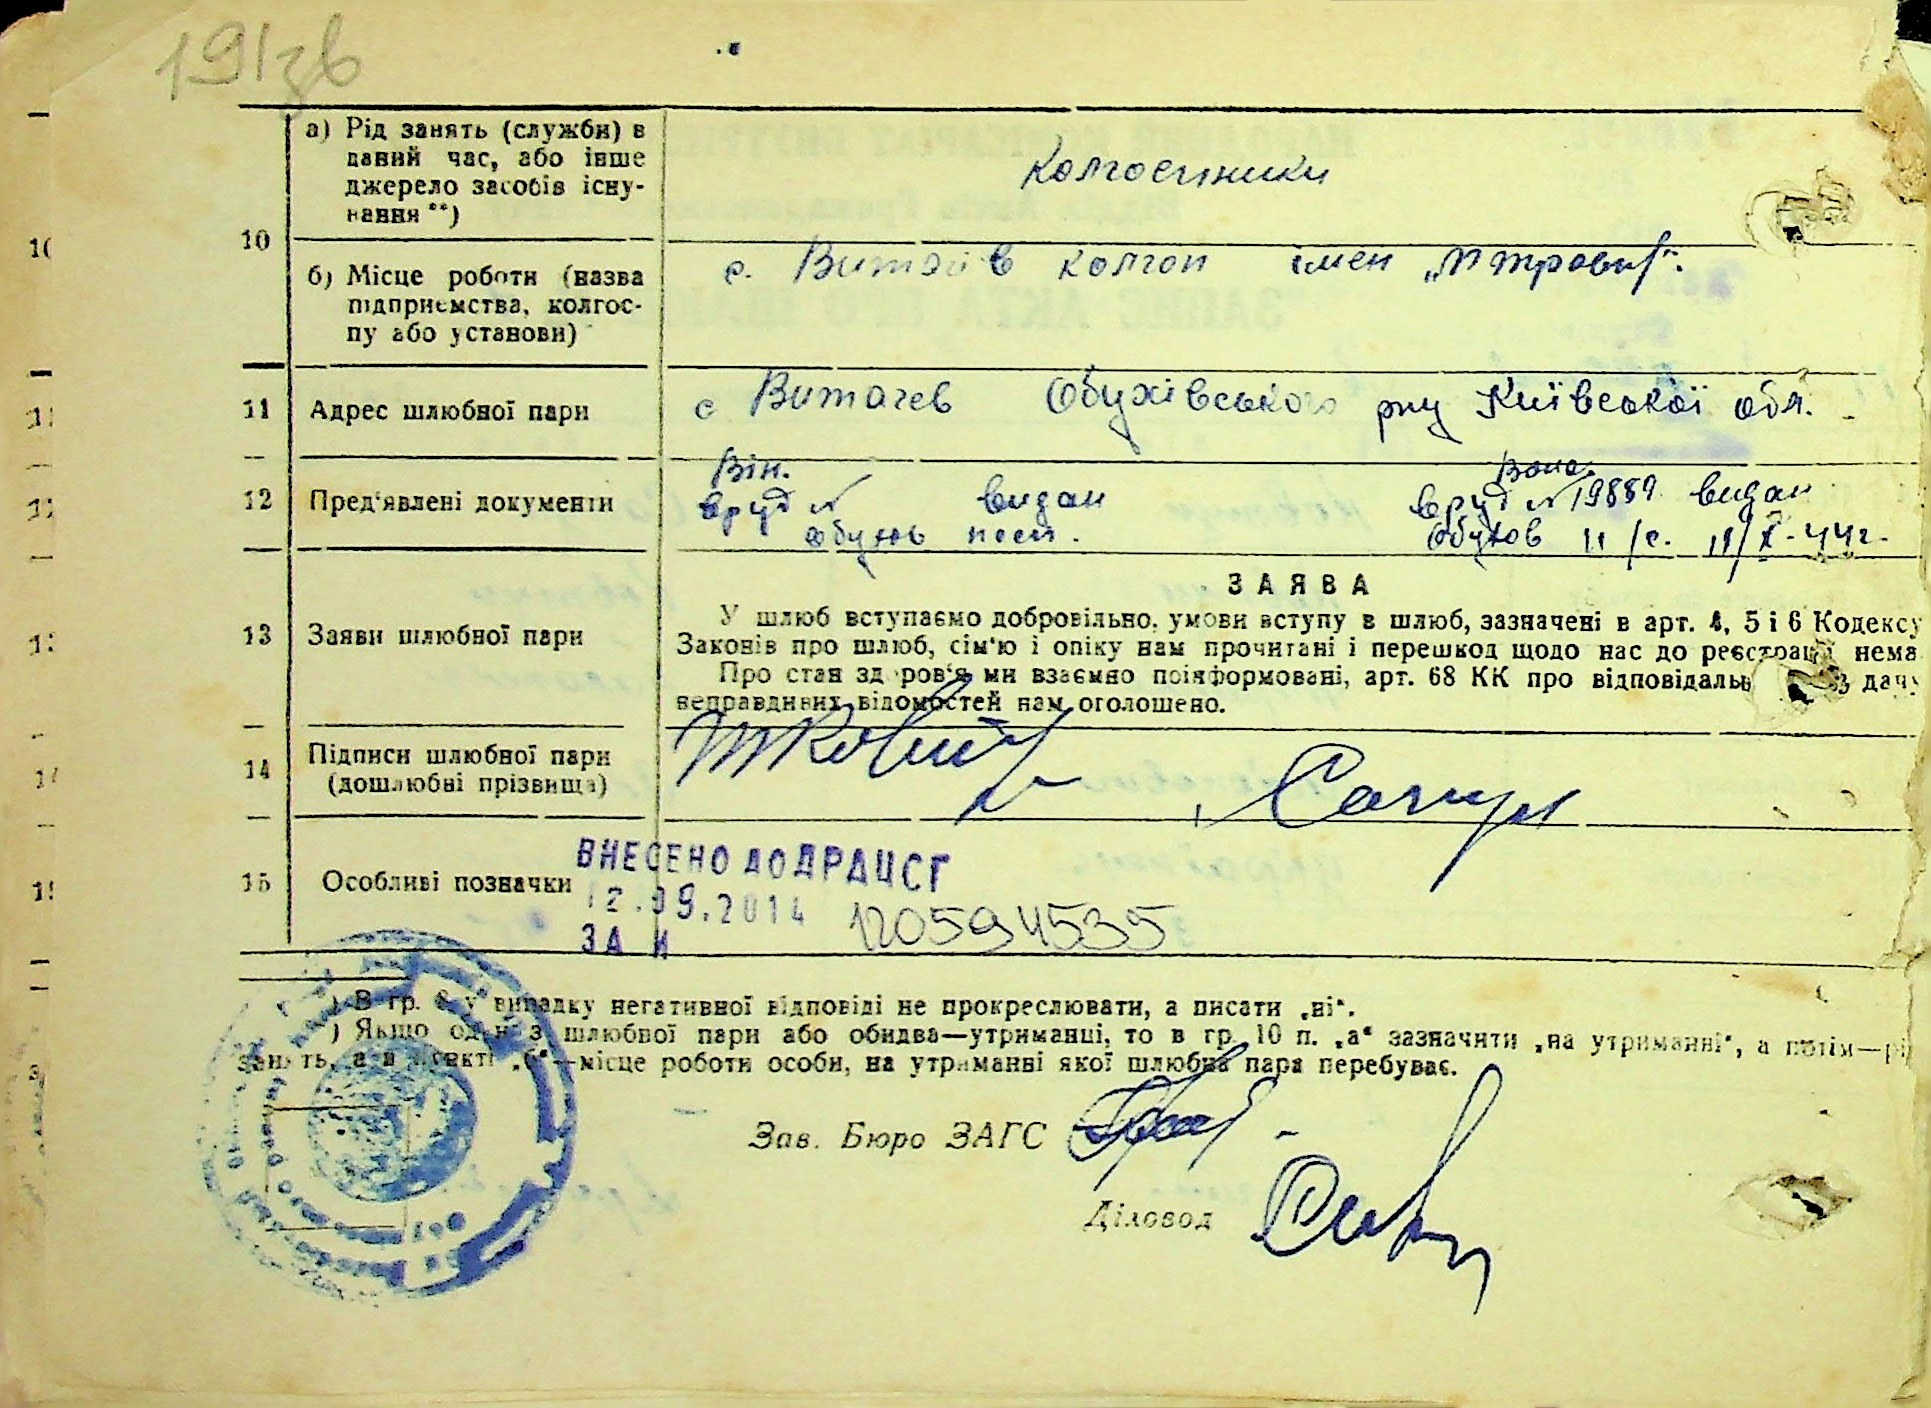 191зв
10
а) Рід занять (служби) в
даний час, або інше
джерело засобів існу-
вання **)
колгоспники
б) Місце роботи (назва
підприємства, колгос-
пу або установи)
с. Витачів колгоп імен
11 Адрес шлюбної пари
с Витачев Обухівського рну Київської обл.
12 Пред'явлені документи
Він. Вона.
видан № 19889 видан
Обухов 11/с.
ЗАЯВА
13 Заяви шлюбної пари
У шлюб вступаємо добровільно, умови вступу в шлюб, зазначені в арт. 4, 5 і 6 Кодексу
Законів про шлюб, сім'ю і опіку нам прочитані і перешкод щодо нас до реєстрації нема
Про стан здоров'я ми взаємно поінформовані, арт. 68 КК про відповідальн
неправдивих відомостей нам оголошено.
14
Підписи шлюбної пари
(дошлюбні прізвища)
15 Особливі позначки
ВНЕСЕНО ДО ДРАЦСГ
12.09.2014
ЗА № 120594535
) В гр. 8 у випадку негативної відповіді не прокреслювати, а писати „ні“.
) Якщо один з шлюбної пари або обидва—утриманці, то в гр. 10 п. „а“ зазначити „на утриманні“, а потім—рі
занять, а в пункті „б“—місце роботи особи, на утриманні якої шлюбна пара перебуває.
Зав. Бюро ЗАГС
Діловод